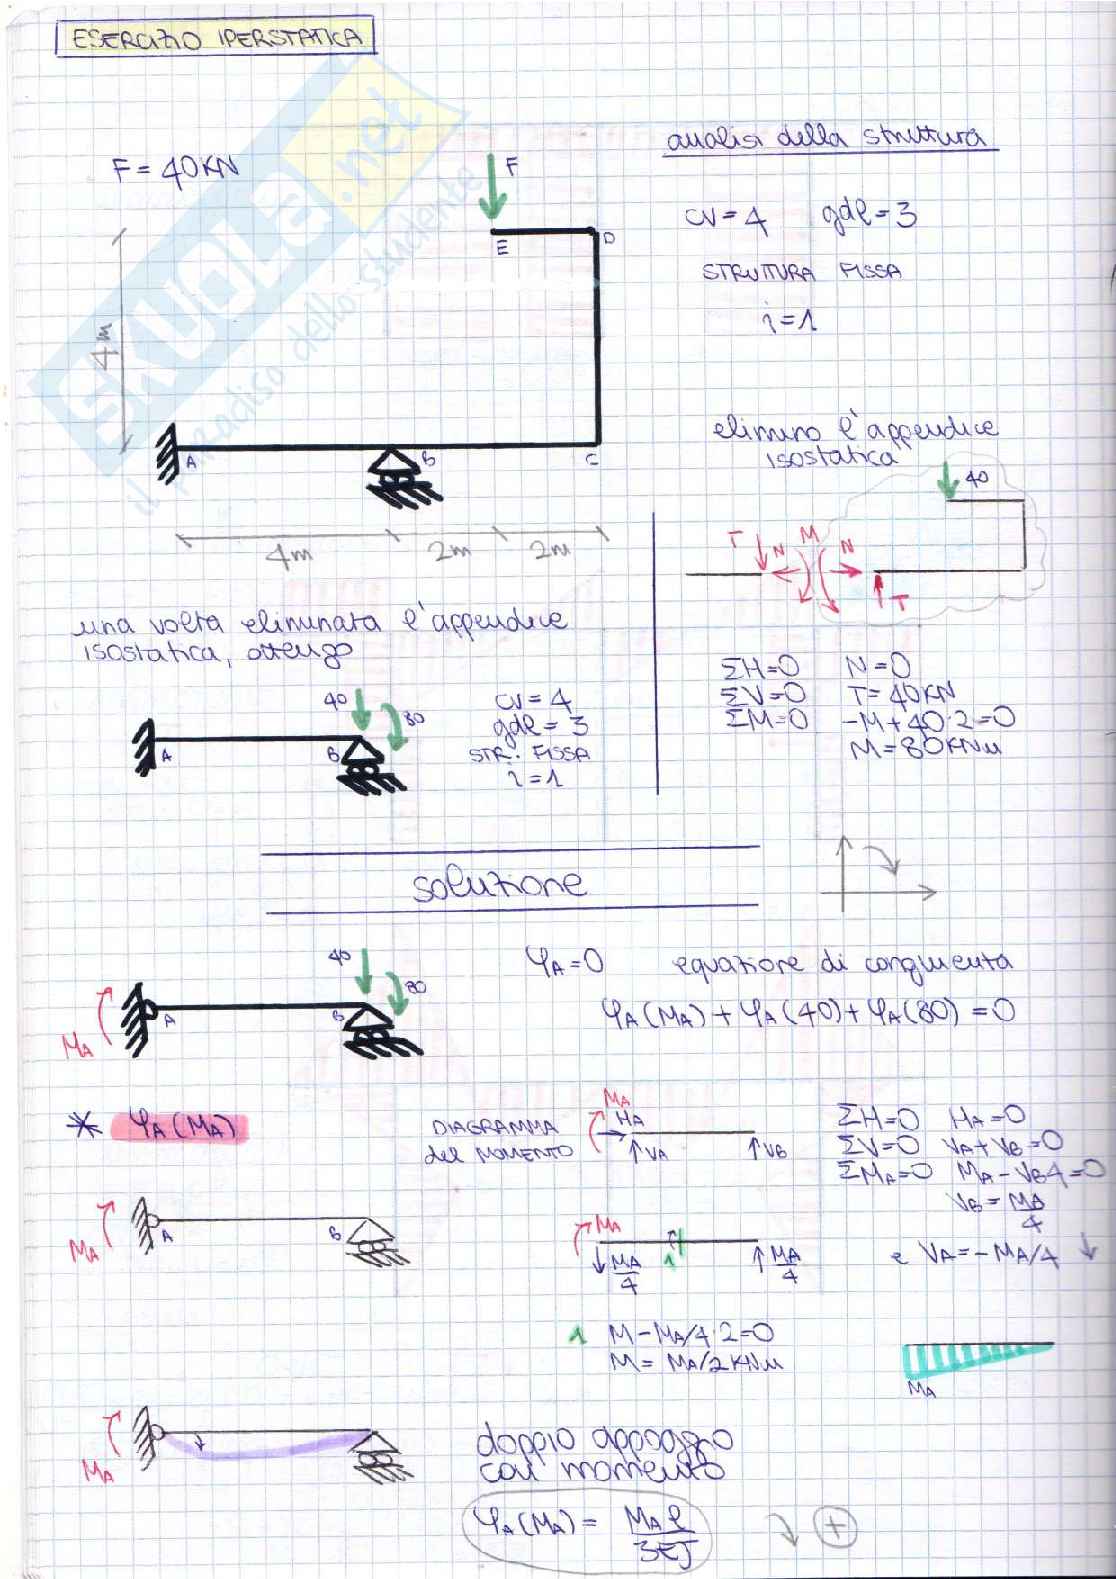 ESERCIZIO IPERSTATICA
SKUOLA.net
il paradiso dello studente
analisi della struttura
F = 40KN
F
cv = 4 gdl = 3
E
D
STRUTTURA FISSA
i = 1
4m
elimino l'appendice
isostatica
A
B
C
40
4m
2m
2m
T
N
M
N
T
una volta eliminata l'appendice
isostatica, ottengo
ΣH=0 N=0
ΣV=0 T=40KN
ΣM=0 -M+40·2=0
M=80KNm
40
80
A
B
cv = 4
gdl = 3
STR. FISSA
i = 1
soluzione
40
80
MA
A
B
φA=0 equazione di congruenza
φA(MA)+φA(40)+φA(80)=0
* φA(MA)
DIAGRAMMA
del MOMENTO
MA
HA
VA
VB
ΣH=0 HA=0
ΣV=0 VA+VB=0
ΣMA=0 MA-VB4=0
VB=MA/4
e VA=-MA/4 ↓
MA
A
B
MA
MA/4
1
MA/4
1 M-MA/4·2=0
M=MA/2KNm
MA
MA
doppio appoggio
con momento
φA(MA)= MAl/3EJ
+